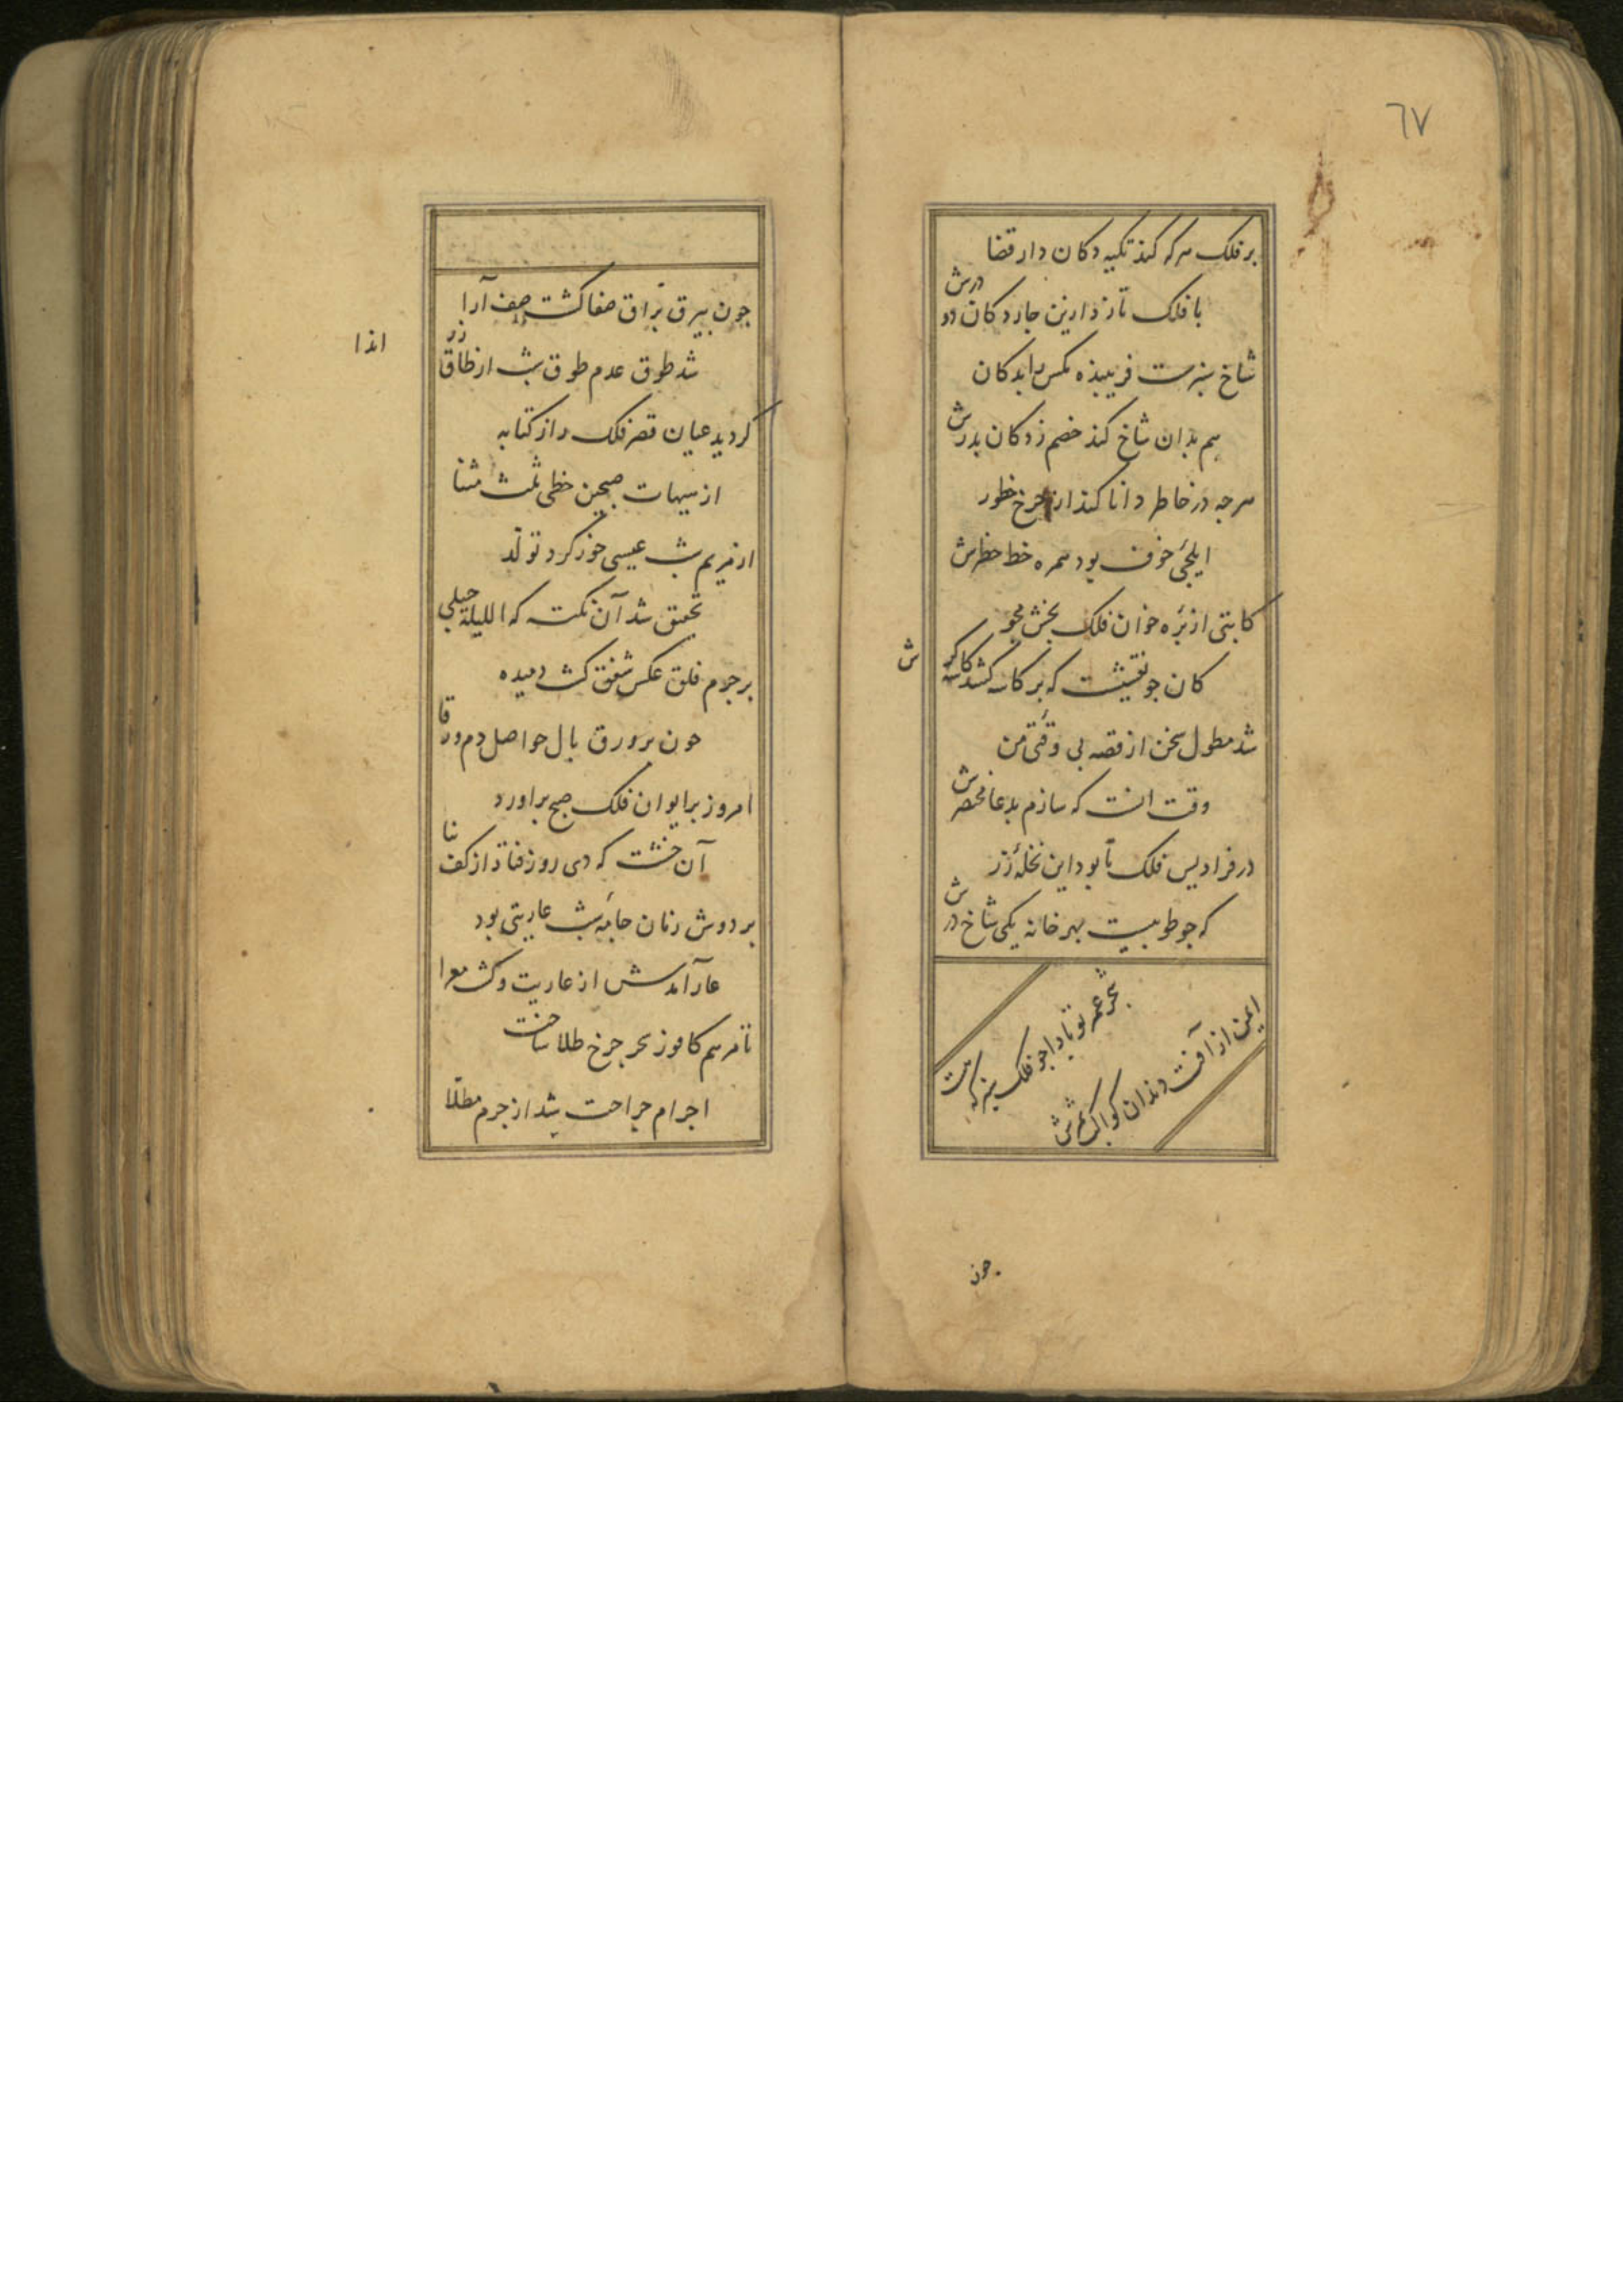 ٦٧
بر فلک هر که کند تکیه دکان دار قضا
با فلک تازد ازین جار دکان دو درش
شاخ سبزست فریبنده مکس را بدکان
هم بدان شاخ کند خصم زدکان بدرش
هرجه در خاطر دانا کند از جرخ خطور
ایلجئ خوف بود همره خط خطرش
کابتی از بره خوان فلک بخش مجو
کان جو نقشیست که بر کاسه کشد کاسه کرش
شد مطول سخن از قصه بی وقتی من
وقت انست که سازم بدعا مختصرش
در فرادیس فلک تا بود این نخلهٔ زر
که جو طوبیست بهر خانه یکی شاخ درش
شجر عمر تو بادا جو فلک سبز که هست
ایمن از آفت دندان کواکب ثمرش
جون
جون بیرق براق صفا کشت صف آرا
شد طوق عدم طوق شب از طاق زر اندا
کردید عیان قصر فلک را ز کتابه
از سیهات صبحین خطی مثنا
از مریم شب عیسی خور کرد تولد
تحقیق شد آن نکته که اللیلة حبلی
بر جرم فلق عکس شفق کشت دمیده
جون بر ورق بال حواصل دم ورقا
امروز بر ایوان فلک صبح براورد
آن خشت که دی روز فتاد از کف بنا
بر دوش زمان جامهٔ شب عاریتی بود
عار آمدش از عاریت و کشت معرا
تا مرهم کافور سحر جرخ طلا ساخت
اجرام جراحت شد از جرم مطلا